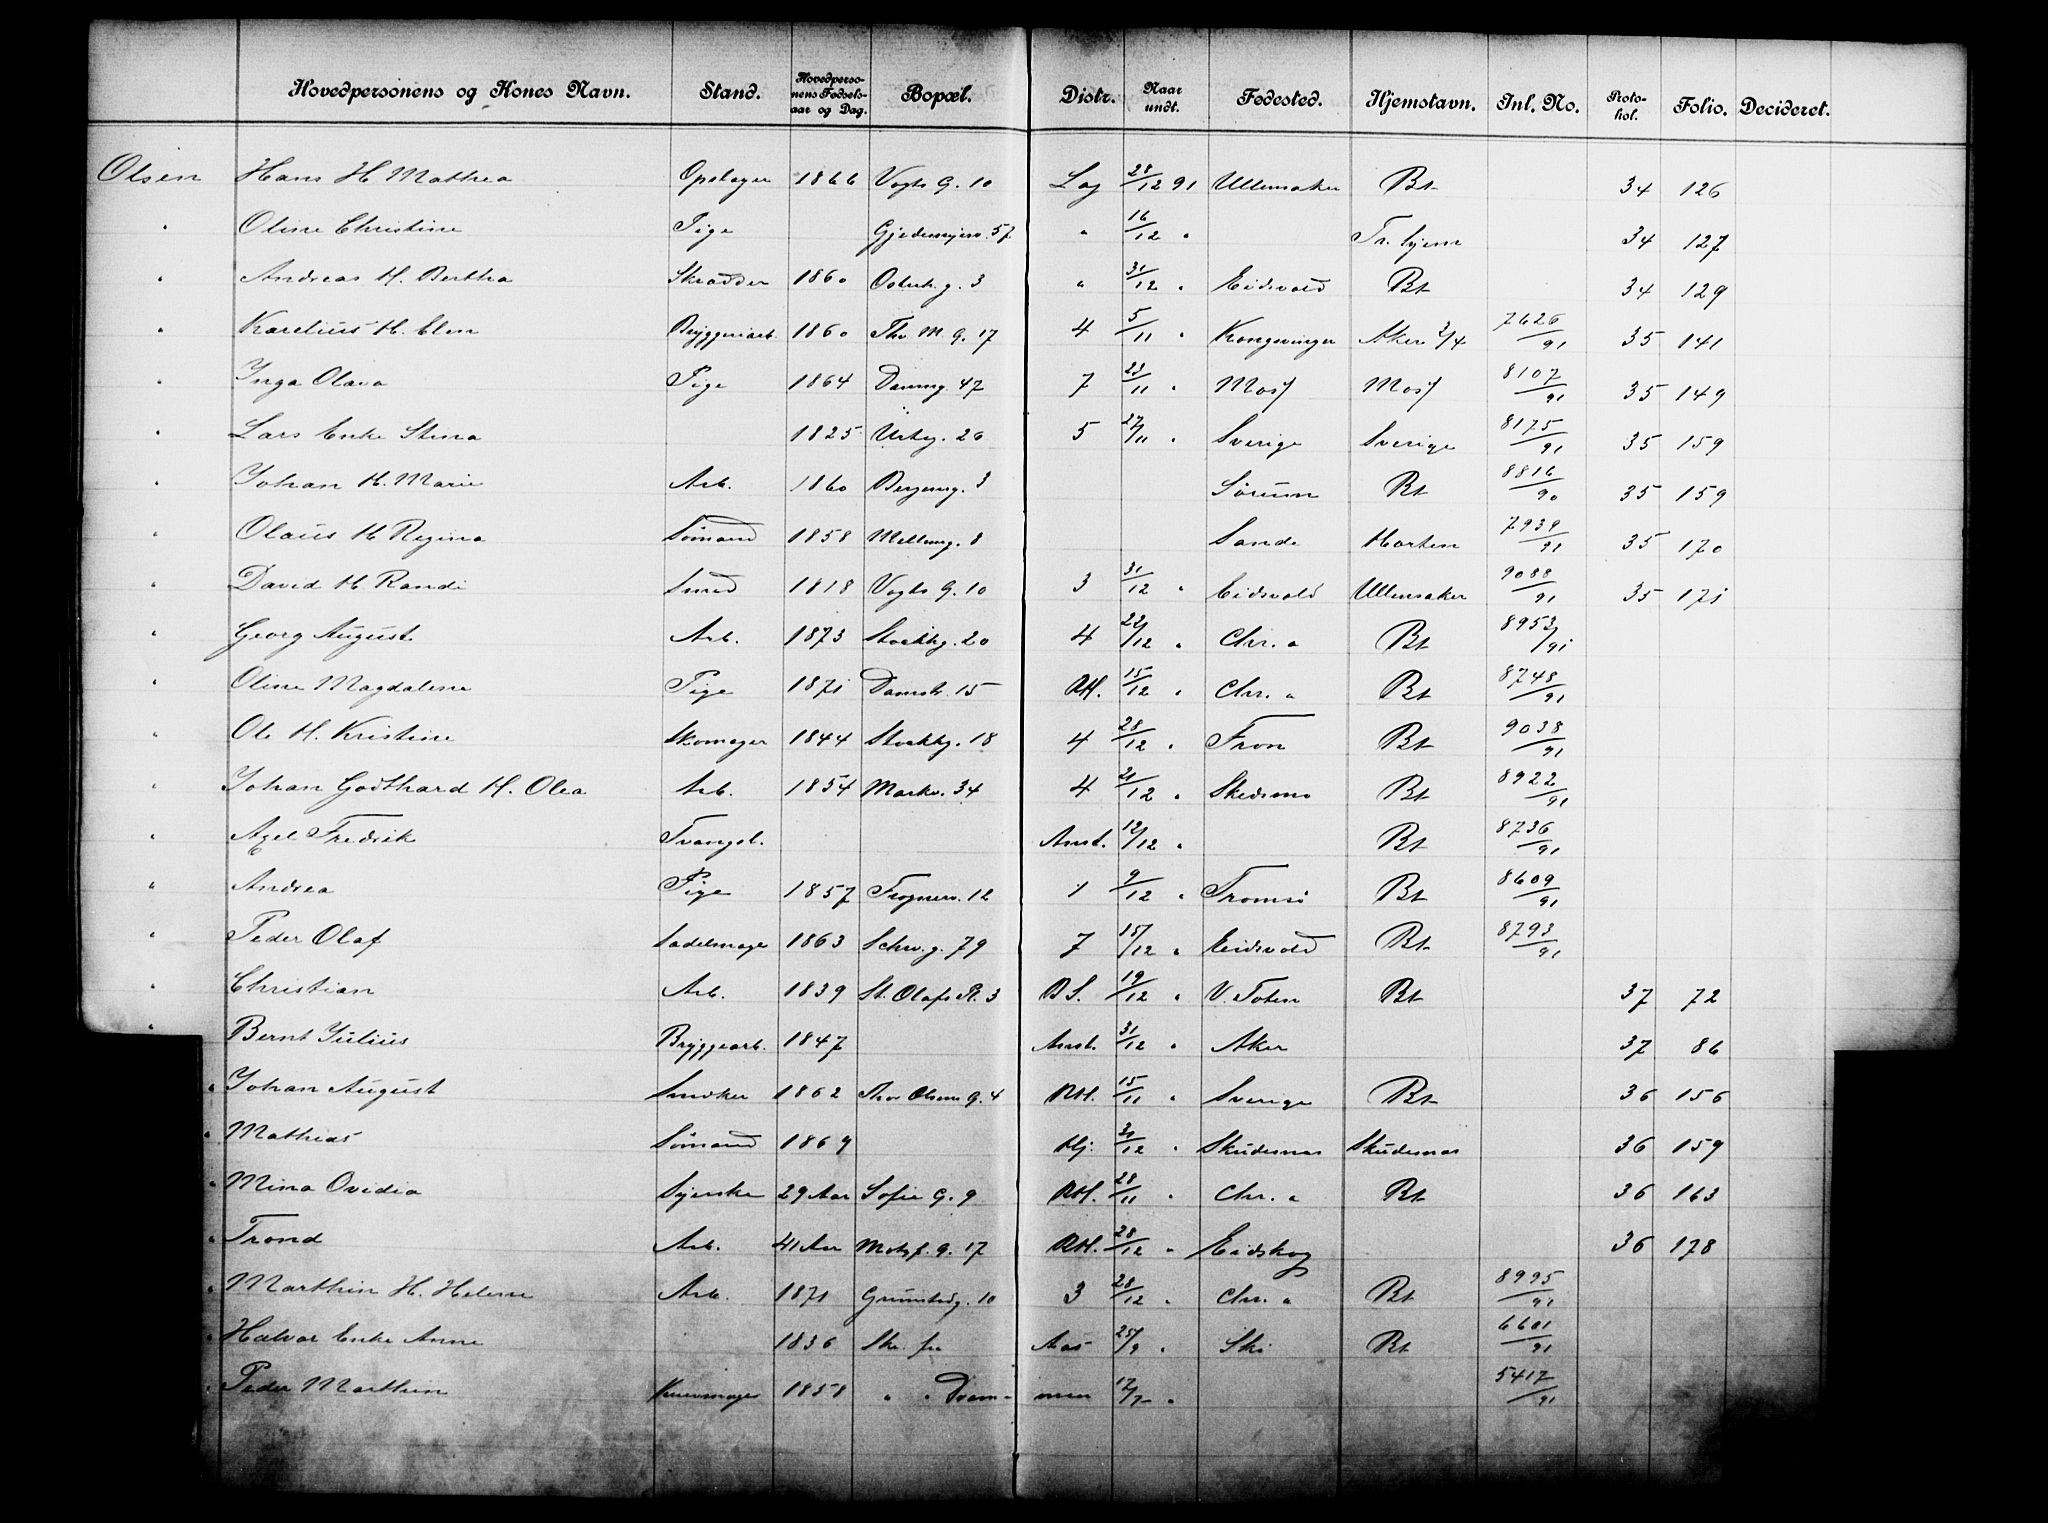 Hovedpersonens og Kones Navn. Stand. Hovedpersonens Fødselsaar og Dag. Bopæl. Distr. Naar undt. Fødested. Hjemstavn. Inl. No. Protokol. Folio. Decideret.
Olsen Hans H Mathea Opslager 1866 Vogts G. 10 Lag 28/12 91 Ullensaker Bt 34 126
" Oline Christine Pige 57 " 16/12 " Tr. hjem 34 127
" Andreas H. Bertha Skrædder 1860 Osterh.g. 3 " 31/12 " Eidsvold Bt 34 129
" Karelius H. Elen Bryggeriarb. 1860 Thv. M. G. 17 4 5/11 " Kongsvinger Aker 3/4 7626/91 35 141
" Inga Olava Pige 1864 Danng. 47 7 23/11 " Moss Moss 8107/91 35 149
" Lars Enke Stina 1825 Urteg. 26 5 27/11 " Sverige Sverige 8175/91 35 159
" Johan H. Marie Arb. 1860 Bergensg. 3 Sørum Bt 8816/90 35 159
" Olaus H Regina Sømand 1858 Mellemg. 8 Sande Horten 7939/91 35 170
" David H Randi Smed 1818 Vogts G. 10 3 31/12 " Eidsvold Ullensaker 9088/91 35 171
" Georg August Arb. 1873 Stockhg. 20 4 22/12 " Chr. a Bt 8953/91
" Oline Magdalene Pige 1871 Damst. 15 RH. 15/12 " Chr. a Bt 8748/91
" Ole H. Kristine Skomager 1844 Stockhg. 18 4 28/12 " Fron Bt 9038/91
" Johan Godthard H. Olea Arb. 1854 Markv. 34 4 21/12 " Skedsmo Bt 8922/91
" Axel Fredrik Tvangsl. Anst. 12/12 " Bt 8736/91
" Andrea Pige 1857 Frognerv. 12 1 9/12 " Tromsø Bt 8609/91
" Peder Olaf Sadelmager 1863 Schw.g. 79 7 15/12 " Eidsvold Bt 8793/91
" Christian Arb. 1839 St. Olafs Pl. 3 BS. 19/12 " V. Toten Bt 37 72
" Bernt Julius Bryggearb. 1847 Anst. 31/12 " Aker 37 86
" Johan August Snedker 1862 Thv Olsens G. 4 RH. 15/11 " Sverige Bt 36 156
" Mathias Sømand 1869 Hj. 31/12 " Skudesnæs Skudesnæs 36 159
" Mina Ovidia Syerske 29 Aar Sofie G. 9 RH. 28/11 " Chr. a Bt 36 163
" Trond Arb. 41 Aar Motzf. G. 17 RH. 28/12 " Eidskog 36 178
" Marthin H. Helene Arb. 1871 Grimstadg. 10 3 28/12 " Chr. a Bt 8995/91
" Halvor Enke Anne 1836 Skr. fra Aas 25/9 " Ski Bt 6601/91
" Peder Marthin 1858 " " Drammen 17/7 " 5417/91